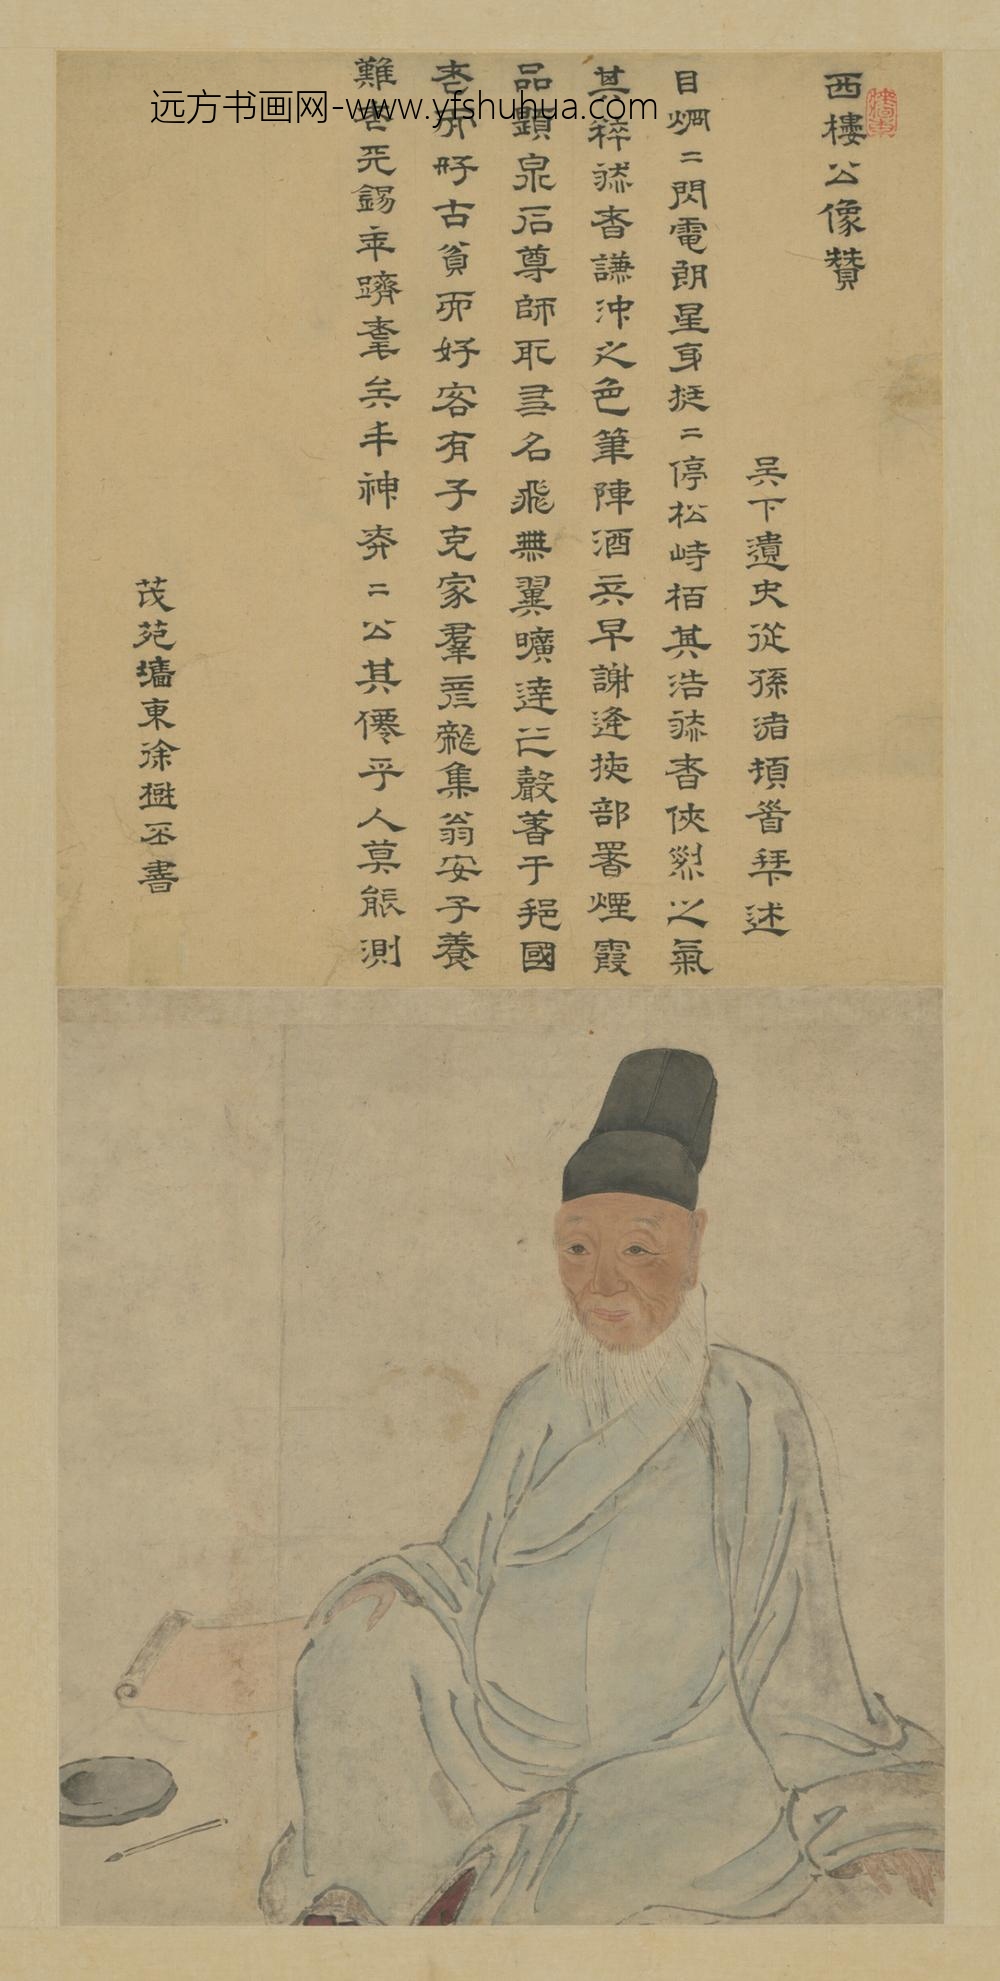 远方书画网-www.yfshuhua.com
西樓公像贊
吳下遺史從孫渚頓首拜述
目烱二閃電朗星身挺二停松峙栢其浩然者俠烈之氣
其粹然者謙沖之色筆陣酒兵早謝逢掖部署煙霞
品題泉石尊師取友名飛無翼曠達聲著于國
老而好古貧而好客有子克家羣彥雜集翁安子養
難老天錫年躋耄矣丰神奕二公其僊乎人莫能測
茂苑墻東徐樹丕書